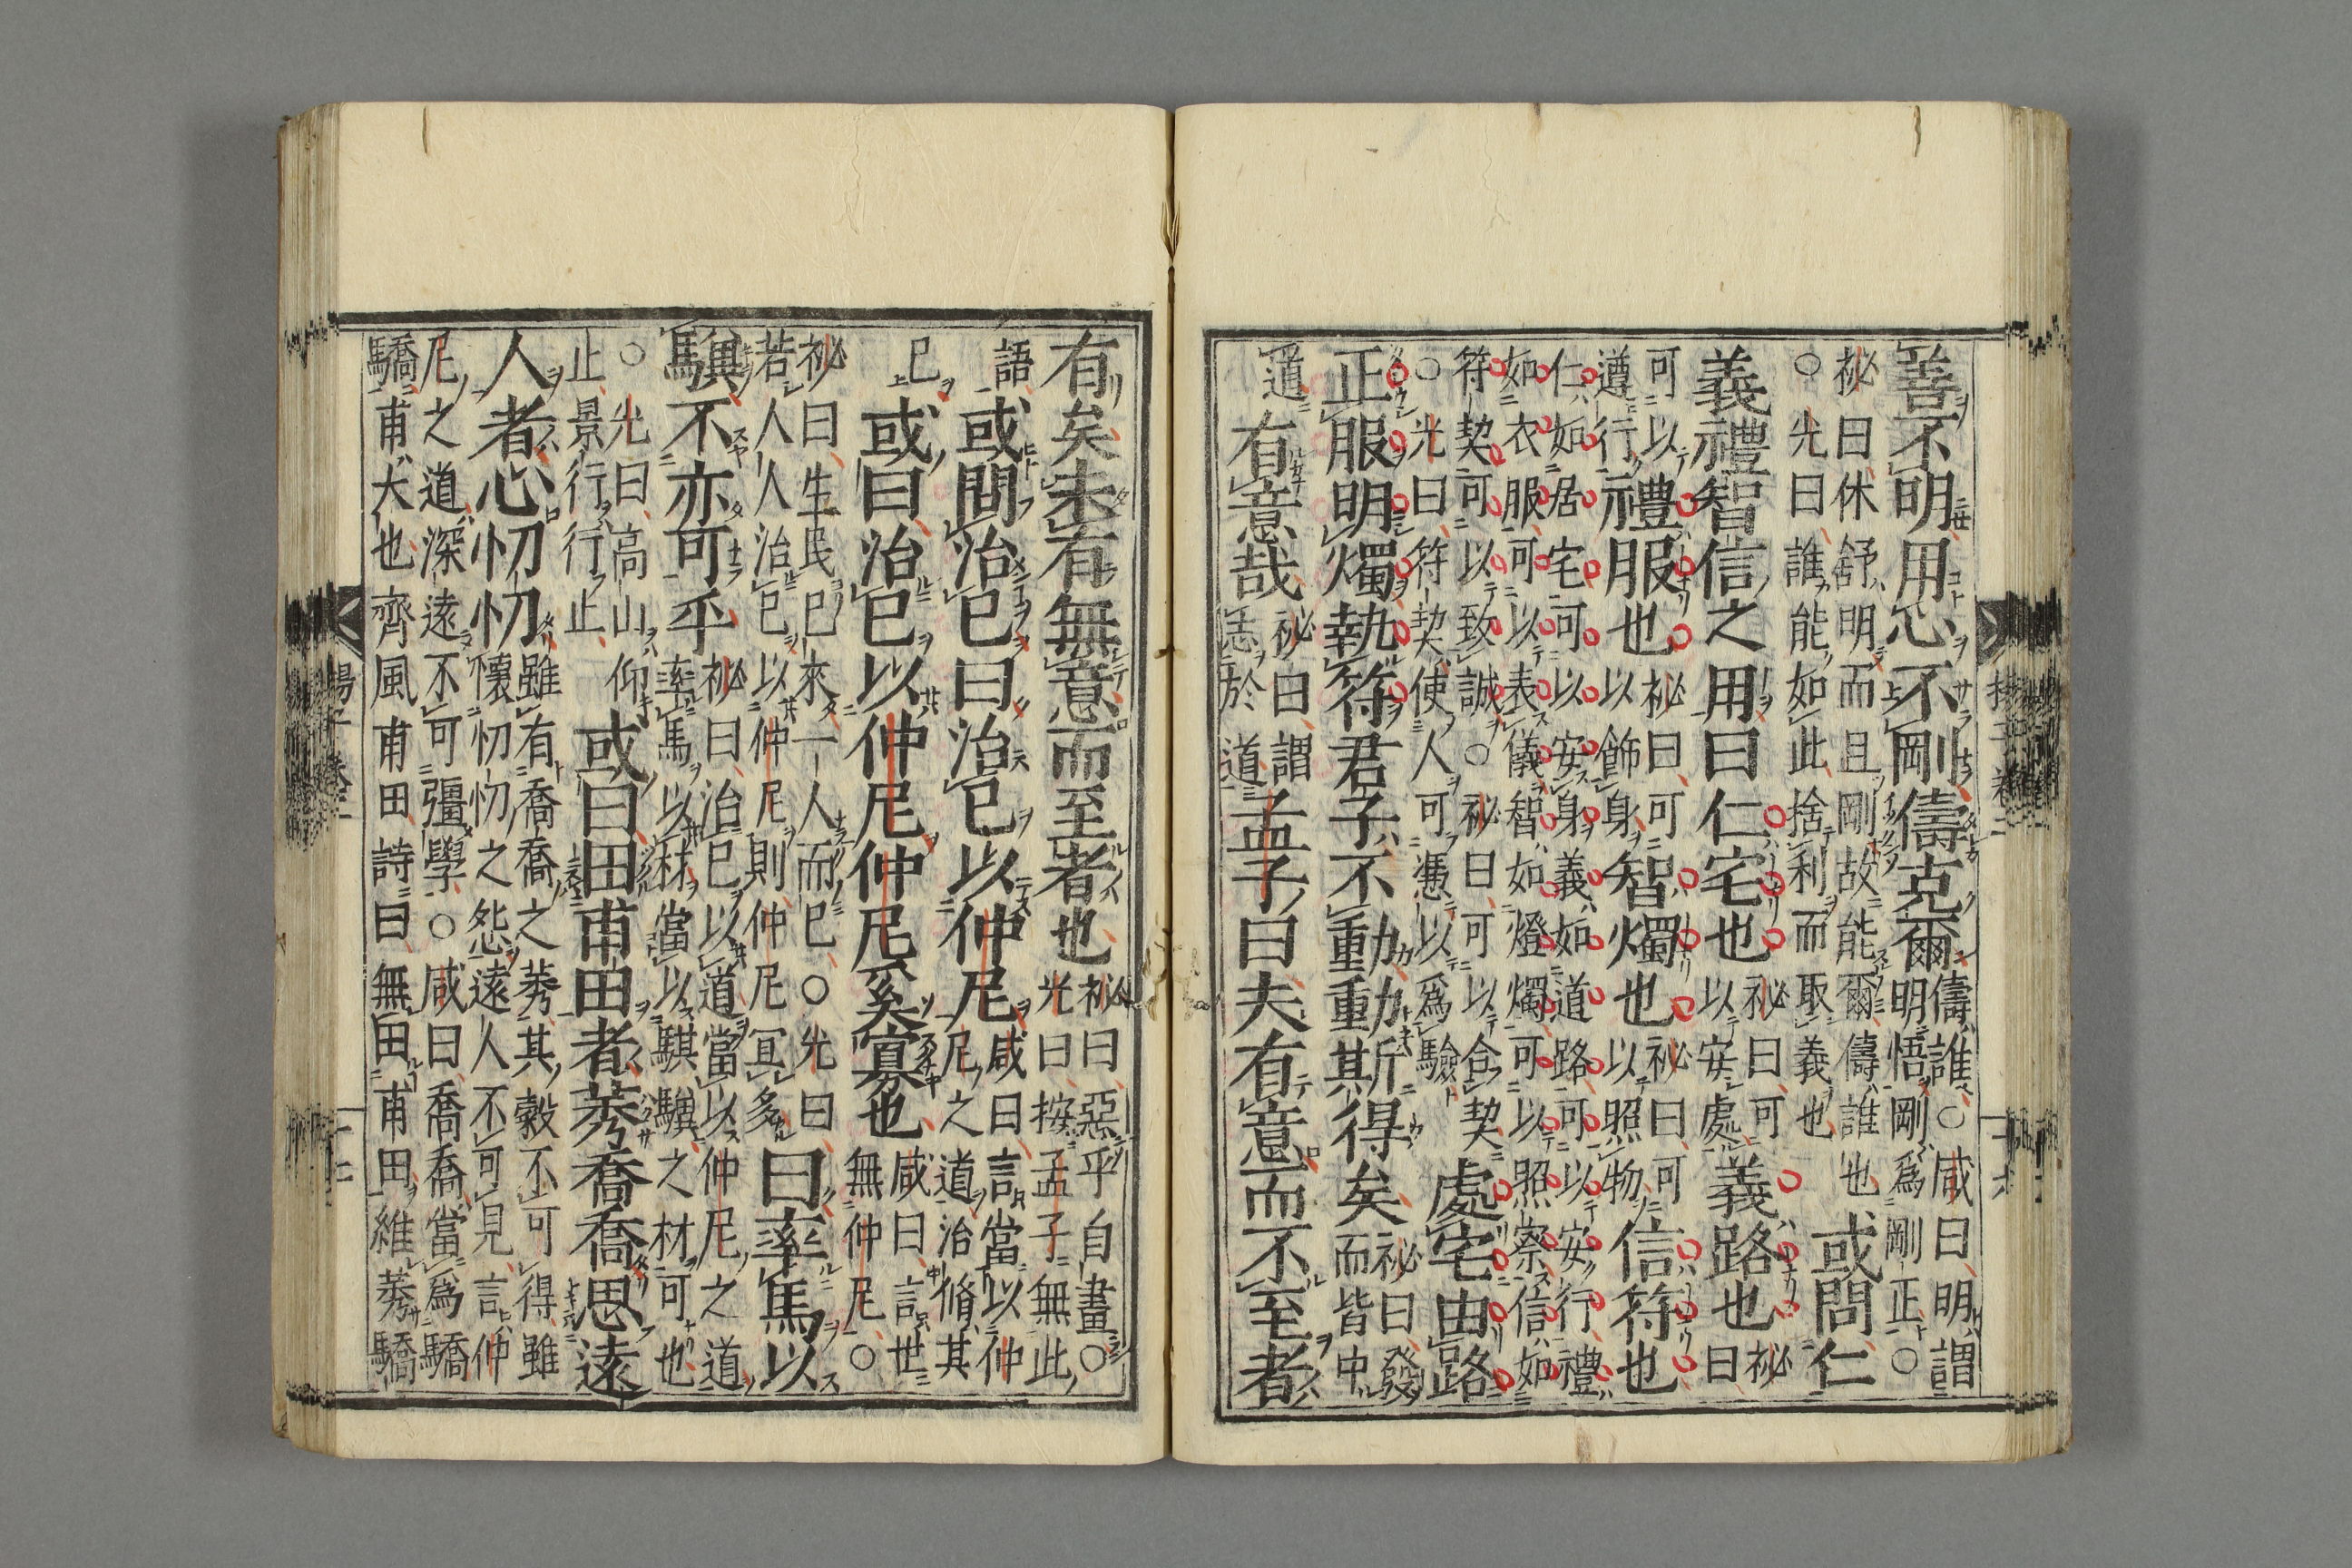 善不明用心不剛儔克爾儔誰○咸曰明謂
明悟剛爲剛正○
祕曰休舒明而且剛故能爾儔誰也
○光曰誰能如此捨利而取義也或問仁
義禮智信之用曰仁宅也祕曰可以安處義路也祕曰
可以遵行禮服也祕曰可以飾身智燭也祕曰可以照物信符也
仁如居宅可以安身義如道路可以安行禮
如衣服可以表儀智如燈燭可以照察信如
符契可以致誠○祕曰可以合契
○光曰符契使人可憑以爲驗處宅由路
正服明燭執符君子不動動斯得矣祕曰發而皆中
道有意哉祕曰謂志於道孟子曰夫有意而不至者
有矣未有無意而至者也祕曰惡乎自畫○
光曰按孟子無此
語或問治己曰治己以仲尼咸曰言當以仲
尼之道治脩其
己或曰治己以仲尼仲尼奚寡也咸曰言世
無仲尼○
祕曰生民已來一人而已○光曰
若人人治己以仲尼則仲尼冝多曰率馬以
驥不亦可乎祕曰治己以道當以仲尼之道
率馬以材當以騏驥之材可也
○光曰高山仰
止景行行止或曰田甫田者莠喬喬思遠
人者心忉忉雖有喬喬之莠其穀不可得雖
懷忉忉之怨遠人不可見言仲
尼之道深遠不可彊學○咸曰喬喬當爲驕
驕甫大也齊風甫田詩曰無田甫田維莠驕